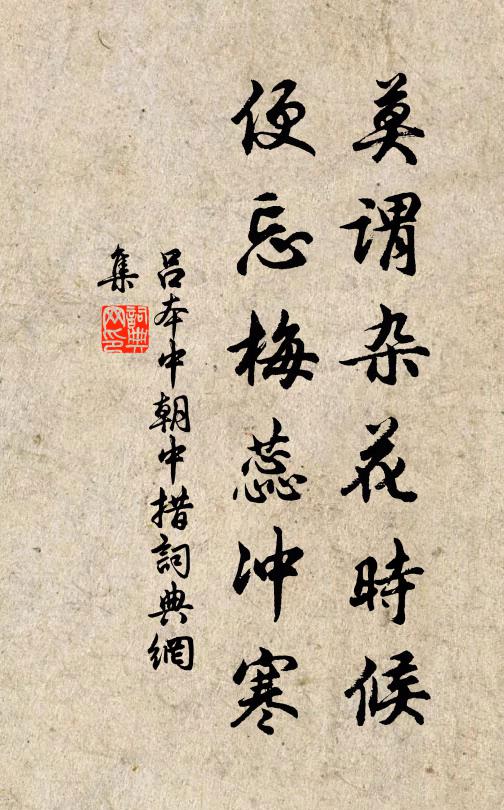 莫谓杂花時候
便忘梅蕊冲寒
吕本中朝中措詞典網
集
詞典
网印